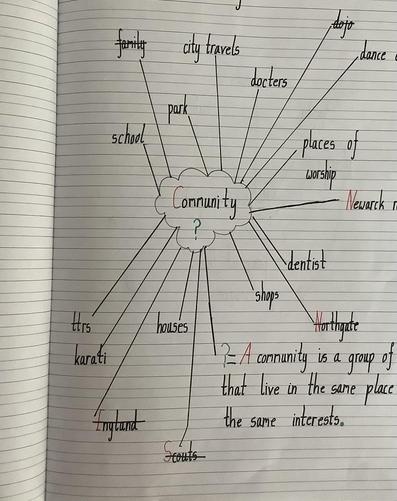 dojo
family
city travels
dance
docters
park
school
places of
worship
Community
?
Newarck
dentist
shops
ttrs
houses
Northgate
karati
?= A community is a group of
that live in the same place
the same interests.
England
Scouts